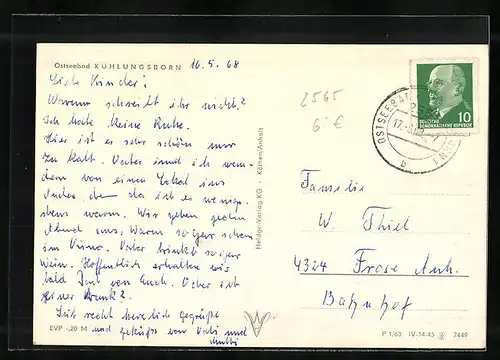 Ostseebad KÜHLUNGSBORN 16.5.68
Liebe Kinder!
Warum schreibt ihr nicht?
Ich habe keine Ruhe.
Hier ist es sehr schön nur
zu kalt. Vater und ich wan-
dern von einem Lokal ins
andere, denn da ist es wenig-
stens warm. Wir gehen jeden
Abend aus, Waren sogar schon
im Kino. Vater trinkt sogar
Wein. Hoffentlich erhalten wir
bald von Euch. Oder ist
einer krank?
Seid recht herzlich gegrüßt
und geküsst von Vati und
Mutti
EVP -,20 M
Heldge-Verlag KG · Köthen/Anhalt
2565
6.- €
OSTSEEBAD
17.
b
DEUTSCHE
DEMOKRATISCHE REPUBLIK
10
Familie
W. Thiel
4324 Frose Anh.
Bahnhof
P 1/62 IV-14-45 7449